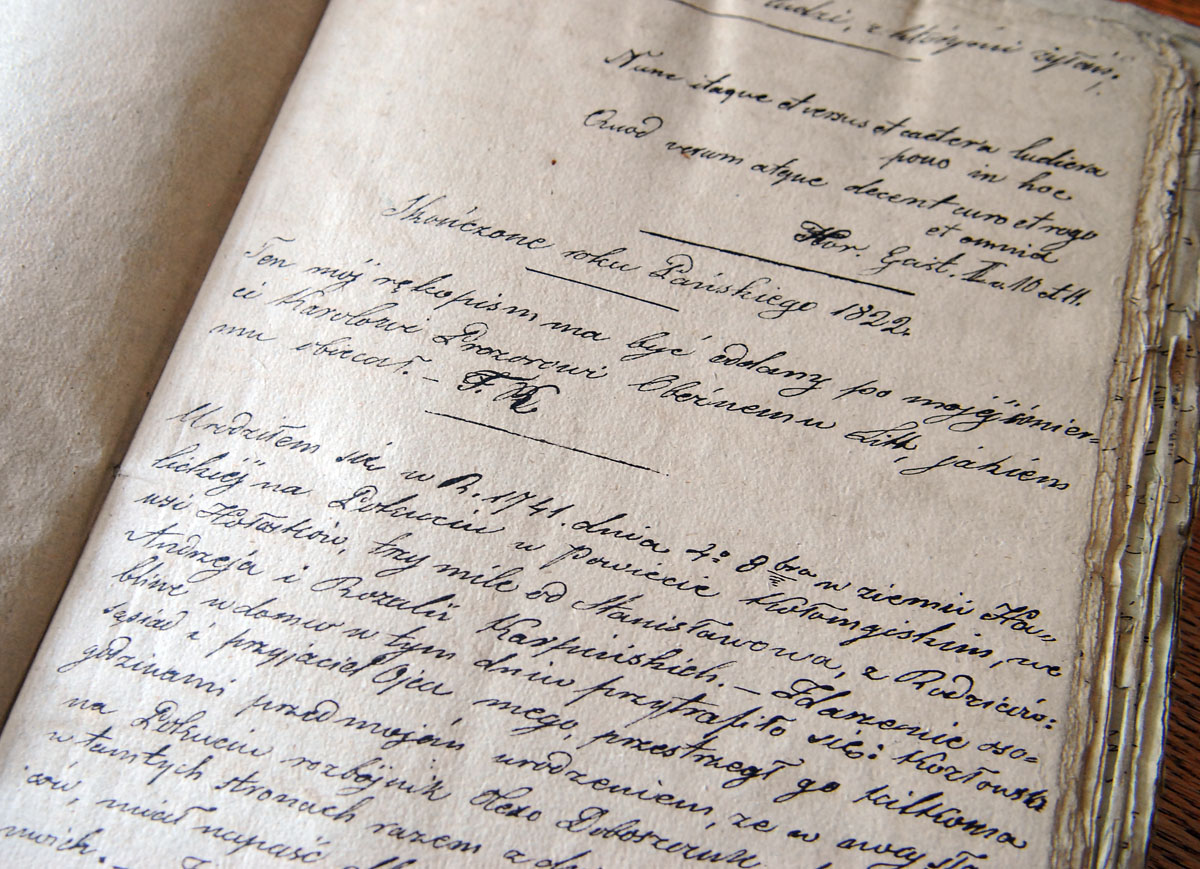 ludzi, z któremi żyłem;
Nunc itaque et versus et caetera ludicra
pono in hoc
Quod verum atque decent curo et rogo
et omnia
Hor. Ep. II v. 10 et 11.
Skończone roku Pańskiego 1822.
Ten mój rękopism ma być oddany po mojéj śmier-
ci Karolowi Prozorowi Oboźnemu Litt, jakiem
mu obiecał. – F. K
Urodziłem się w R. 1741. dnia 4: 8bra w ziemii Ha-
lickiéj na Pokuciu w Powiecie Kołomyiskim, we
wsi Hołoskow, trzy mile od Stanisławowa, z Rodziców:
Andrzeja i Rozalii Karpińskich. – Zdarzenie oso-
bliwe w domu w tym dniu przytrafiło się: Kozłowski
sąsiad i przyjaciel Ojca mego, przestrzegł go kilkoma
godzinami przed mojém urodzeniem, że w nocy
na Pokuciu rozbójnik Olexo Doboszczuk
w tamtych stronach razem z
miał napaść
moich. –